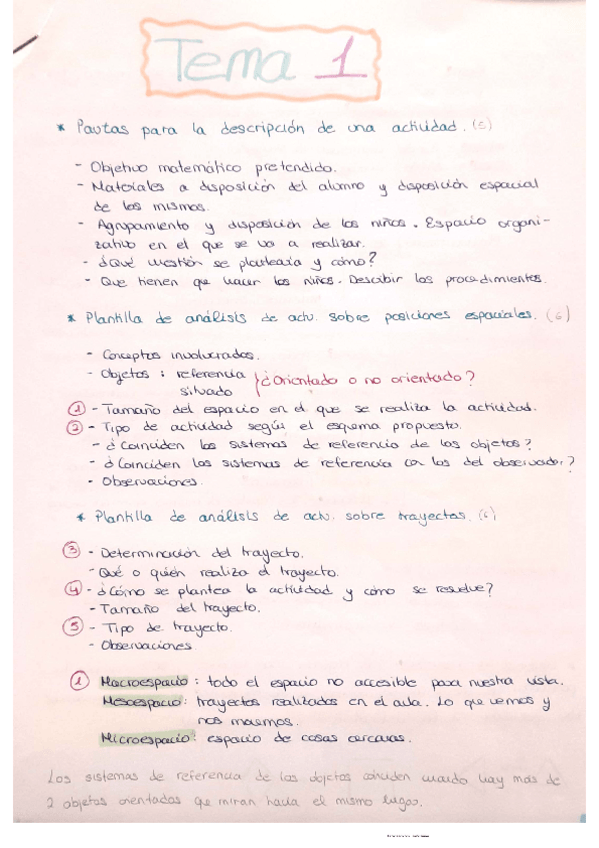 Tema 1
* Pautas para la descripción de una actividad. (5)
- Objetivo matemático pretendido.
- Materiales a disposición del alumno y disposición espacial
de los mismos.
- Agrupamiento y disposición de los niños. Espacio organi-
zativo en el que se va a realizar.
- ¿Qué cuestión se plantearía y cómo?
- Que tienen que hacer los niños. Describir los procedimientos.
* Plantilla de análisis de actv. sobre posiciones espaciales. (6)
- Conceptos involucrados.
- Objetos : referencia
situado } ¿Orientado o no orientado?
① - Tamaño del espacio en el que se realiza la actividad.
② - Tipo de actividad según el esquema propuesto.
- ¿Coinciden los sistemas de referencia de los objetos?
- ¿Coinciden los sistemas de referencia con los del observador?
- Observaciones.
* Plantilla de análisis de actv. sobre trayectos. (6)
③ - Determinación del trayecto.
- Qué o quién realiza el trayecto.
④ - ¿Cómo se plantea la actividad y cómo se resuelve?
- Tamaño del trayecto.
⑤ - Tipo de trayecto.
- Observaciones
① Macroespacio : todo el espacio no accesible para nuestra vista.
Mesoespacio : trayectos realizados en el aula. Lo que vemos y
nos movemos.
Microespacio : espacio de cosas cercanas.
Los sistemas de referencia de los objetos coinciden cuando hay más de
2 objetos orientados que miran hacia el mismo lugar.